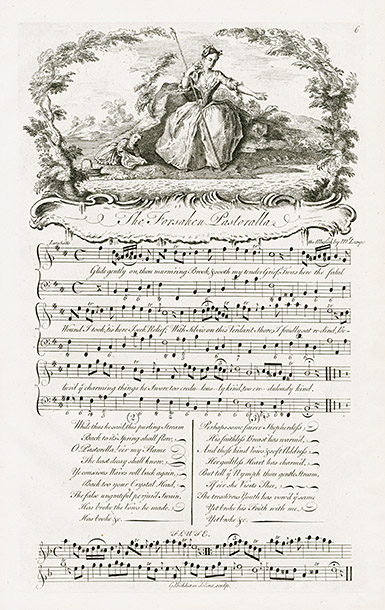 6
The Forsaken Pastoralla
the Musick by Mr Lampe
Glide gently on, thou murm'ring Brook, & sooth my tender Grief, 'twas here the fatal
Wound I took, tis here I seek Relief. With Silvio on this Verdant Shore, I fondly sat reclind, Be-
leiv'd ye charming things he Swore too credu-lous-ly kind, too cre-dulously kind,
(2)
While thus he said, this purling Stream
Back to its Spring shall flow,
O Pastoralla! e'er my Flame
The least decay shall know,
Ye conscious Waves roll back again,
Back to your Crystal Head,
The false ungratefull perjur'd Swain,
Has broke the Vows he made.
Has broke &c.
(3)
Perhaps some fairer Shepherdess
His faithless Breast has warm'd,
And those kind Vows & soft Address
Her guiltless Heart has charm'd,
But tell ye Nymph thou gentle Stream,
If e'er she Visits Thee,
The treach'rous Youth has vow'd ye same
Yet broke his Faith with me.
Yet broke &c.
FLUTE.
G. Bickham junr. sculp.